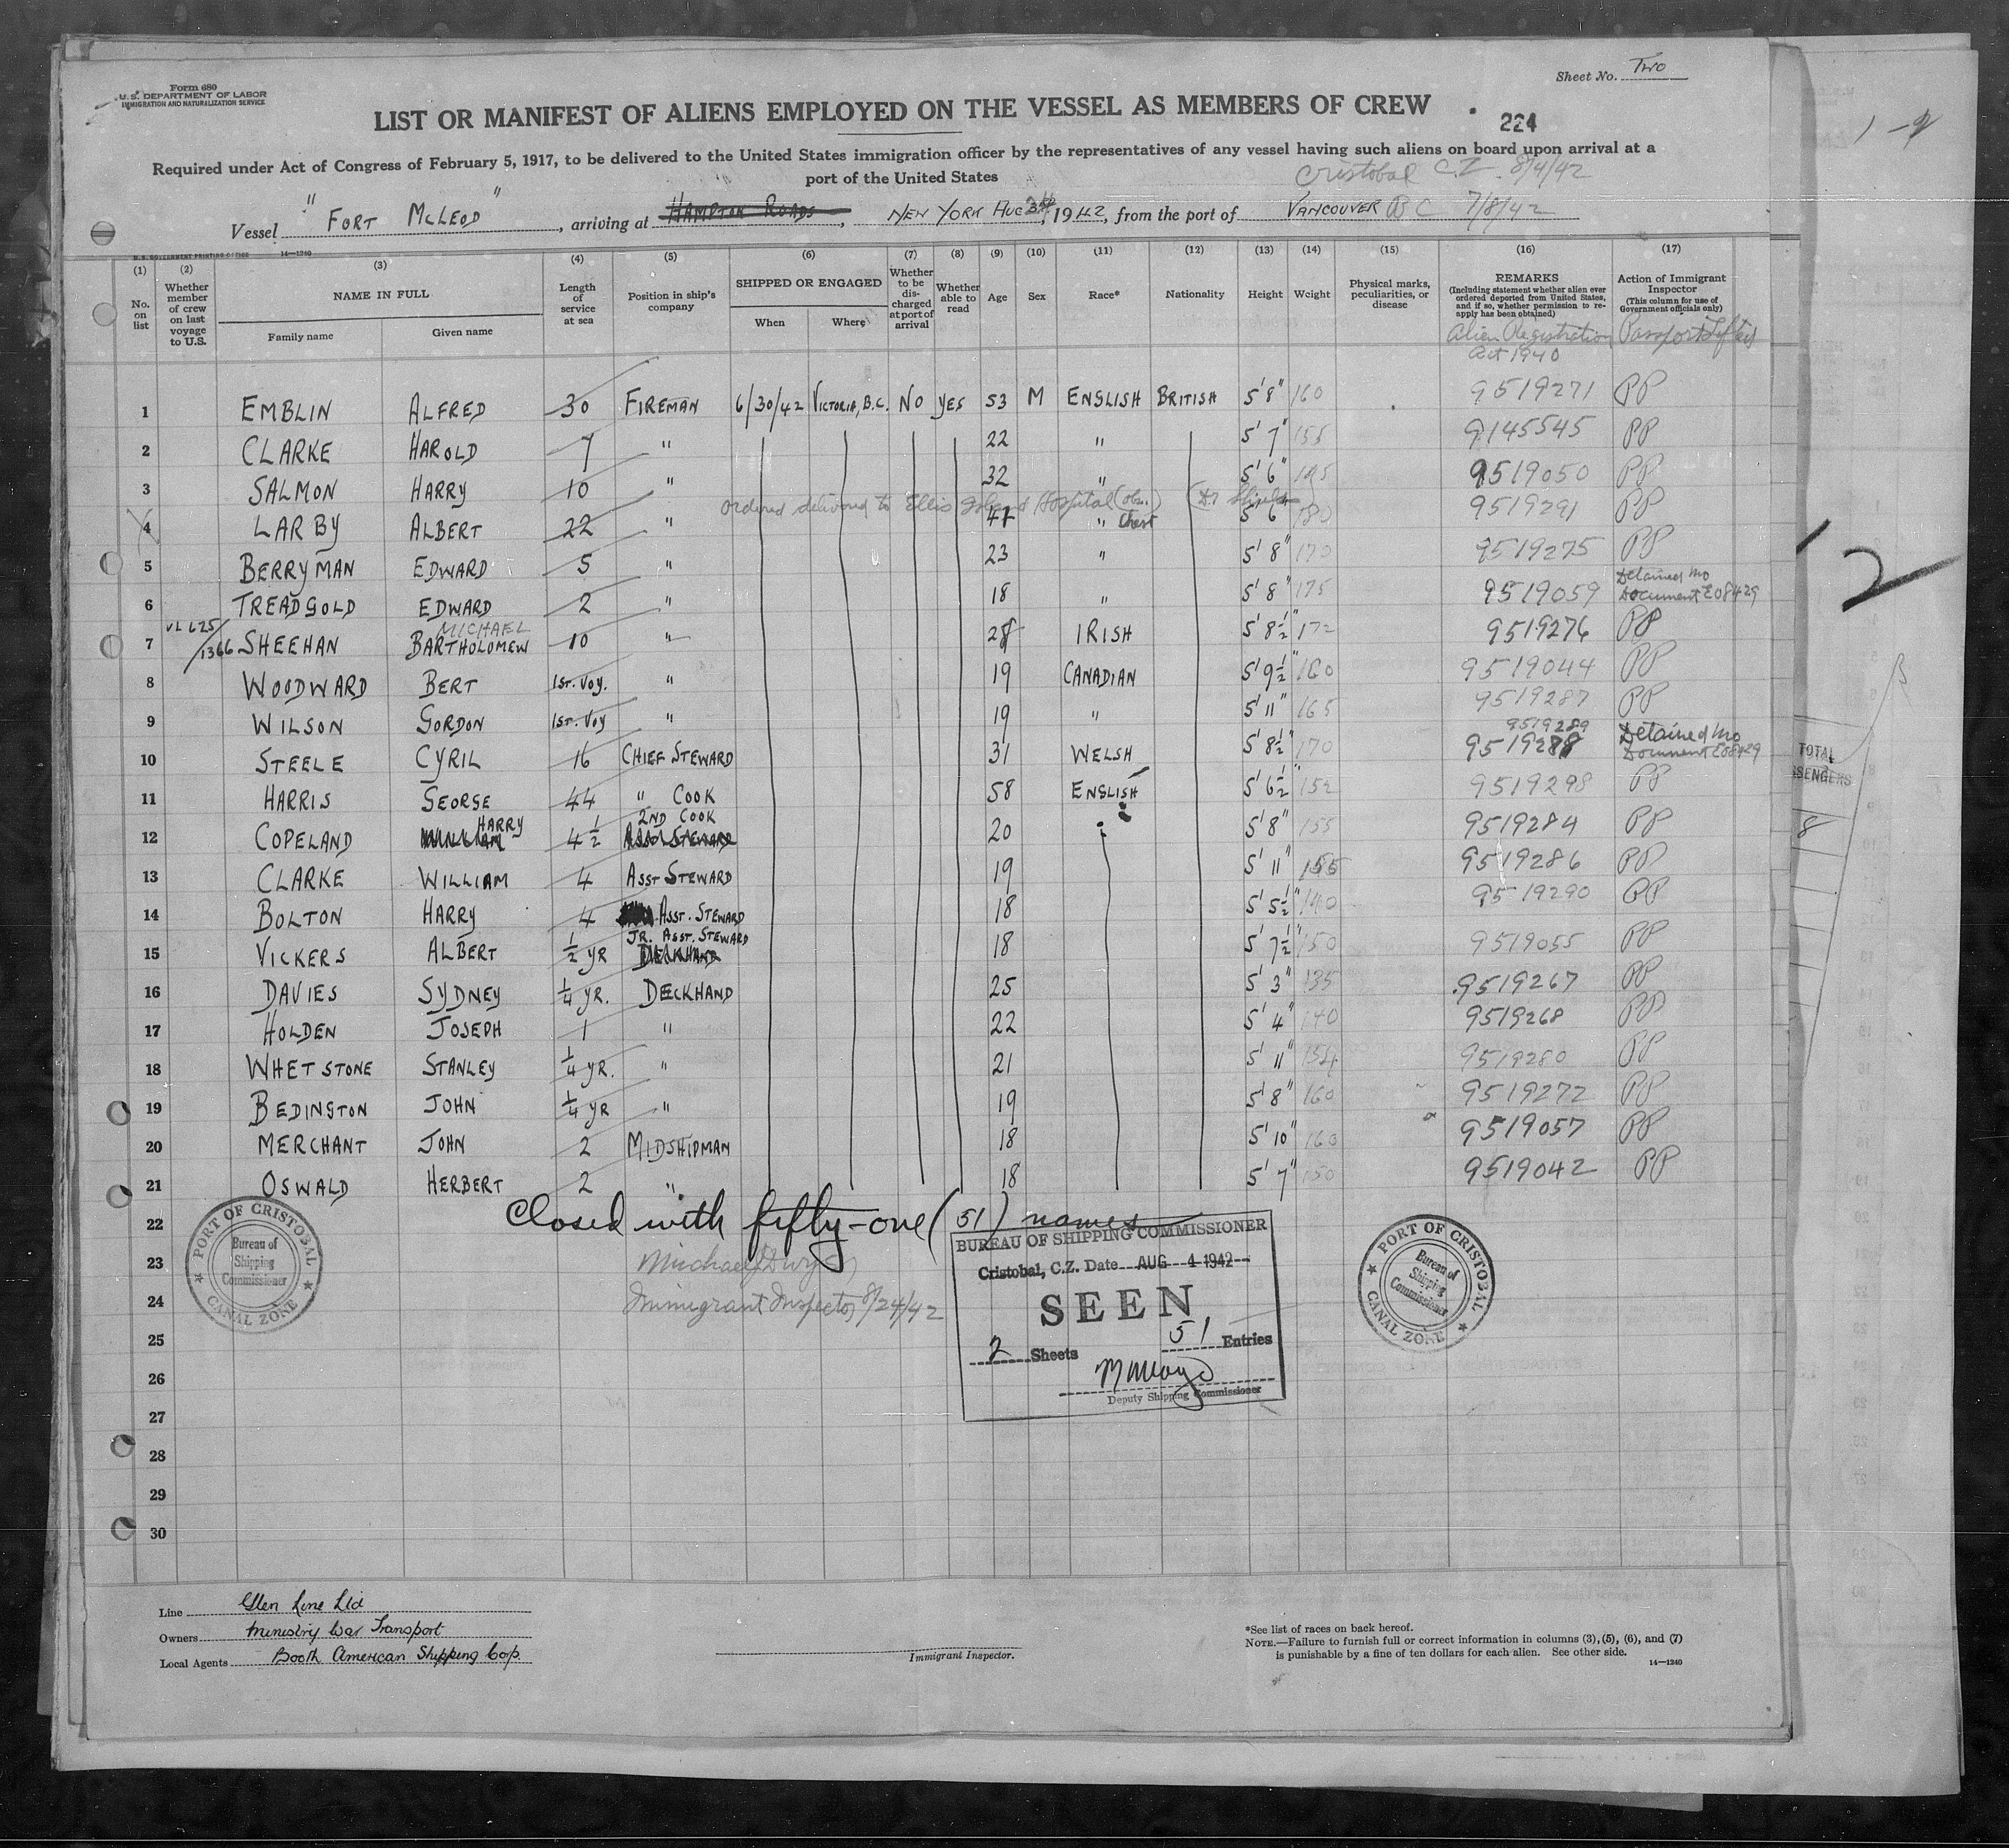 Form 680
U. S. DEPARTMENT OF LABOR
IMMIGRATION AND NATURALIZATION SERVICE
Sheet No. Two
LIST OR MANIFEST OF ALIENS EMPLOYED ON THE VESSEL AS MEMBERS OF CREW
224
1-2
Required under Act of Congress of February 5, 1917, to be delivered to the United States immigration officer by the representatives of any vessel having such aliens on board upon arrival at a
port of the United States
Cristobal C.Z. 8/4/42
Vessel "FORT McLEOD", arriving at HAMPTON ROADS, NEW YORK AUG , 1942, from the port of VANCOUVER B C 7/8/42
U. S. GOVERNMENT PRINTING OFFICE 14—1240
(1) (2) (3) (4) (5) (6) (7) (8) (9) (10) (11) (12) (13) (14) (15) (16) (17)
No. on list
Whether member of crew on last voyage to U.S.
NAME IN FULL
Family name
Given name
Length of service at sea
Position in ship's company
SHIPPED OR ENGAGED
When
Where
Whether to be discharged at port of arrival
Whether able to read
Age
Sex
Race*
Nationality
Height
Weight
Physical marks, peculiarities, or disease
REMARKS
(Including statement whether alien ever ordered deported from United States, and if so, whether permission to reapply has been obtained)
Action of Immigrant Inspector
(This column for use of Government officials only)
Alien Registration
Act 1940
1 EMBLIN ALFRED 30 FIREMAN 6/30/42 VICTORIA, B.C. NO YES 53 M ENGLISH BRITISH 5' 8" 160 9519271 PP
2 CLARKE HAROLD 7 " 22 " 5' 7" 155 9145545 PP
3 SALMON HARRY 10 " 32 " 5' 6" 195 9519050 PP
ordered delivered to Ellis Island Hospital (obs.)
4 LARBY ALBERT 22 " 41 " Chest 5' 6" 180 9519291 PP
5 BERRYMAN EDWARD 5 " 23 " 5' 8" 170 9519275 PP
6 TREADGOLD EDWARD 2 " 18 " 5' 8" 175 9519059 Detained no Document E08429
MICHAEL
7 SHEEHAN BARTHOLOMEW 10 " IRISH 5' 8½" 172 9519276 PP
8 WOODWARD BERT 1ST. VOY. " 19 CANADIAN 5' 9½" 160 9519044 PP
9 WILSON GORDON 1ST. VOY " 19 " 5' 11" 165 9519287 PP
9519289
10 STEELE CYRIL 16 CHIEF STEWARD 31 WELSH 5' 8½" 170 9519288 Detained no Document E08429
11 HARRIS GEORGE 44 " COOK 58 ENGLISH 5' 6½" 152 9519298 PP
HARRY 2ND COOK
12 COPELAND WILLIAM 4½ ASST STEWARD 20 " 5' 8" 155 9519284 PP
13 CLARKE WILLIAM 4 ASST STEWARD 19 5' 11" 155 9519286 PP
14 BOLTON HARRY 4 ASST. STEWARD 18 5' 5½" 140 9519290 PP
JR. ASST. STEWARD
15 VICKERS ALBERT ½ YR DECKHAND 18 5' 7½" 150 9519055 PP
16 DAVIES SYDNEY ¼ YR. DECKHAND 25 5' 3" 135 9519267 PP
17 HOLDEN JOSEPH 1 " 22 5' 4" 140 9519268 PP
18 WHETSTONE STANLEY ¼ YR. " 21 5' 11" 154 9519280 PP
19 BEDINGTON JOHN ¼ YR " 19 5' 8" 160 9519272 PP
20 MERCHANT JOHN 2 MIDSHIPMAN 18 5' 10" 160 9519057 PP
21 OSWALD HERBERT 2 " 18 5' 7" 150 9519042 PP
22 Closed with fifty-one (51) names
23 Michael
24 Immigrant Inspector 8/24/42
25
26
27
28
29
30
PORT OF CRISTOBAL
Bureau of Shipping Commissioner
CANAL ZONE
BUREAU OF SHIPPING COMMISSIONER
Cristobal, C.Z. Date AUG 4 1942
SEEN
2 Sheets 51 Entries
Deputy Shipping Commissioner
PORT OF CRISTOBAL
Bureau of Shipping Commissioner
CANAL ZONE
2
TOTAL
8
Line Glen Line Ltd
Owners Ministry War Transport
Local Agents Booth American Shipping Corp.
Immigrant Inspector.
*See list of races on back hereof.
NOTE.—Failure to furnish full or correct information in columns (3), (5), (6), and (7)
is punishable by a fine of ten dollars for each alien. See other side.
14—1240